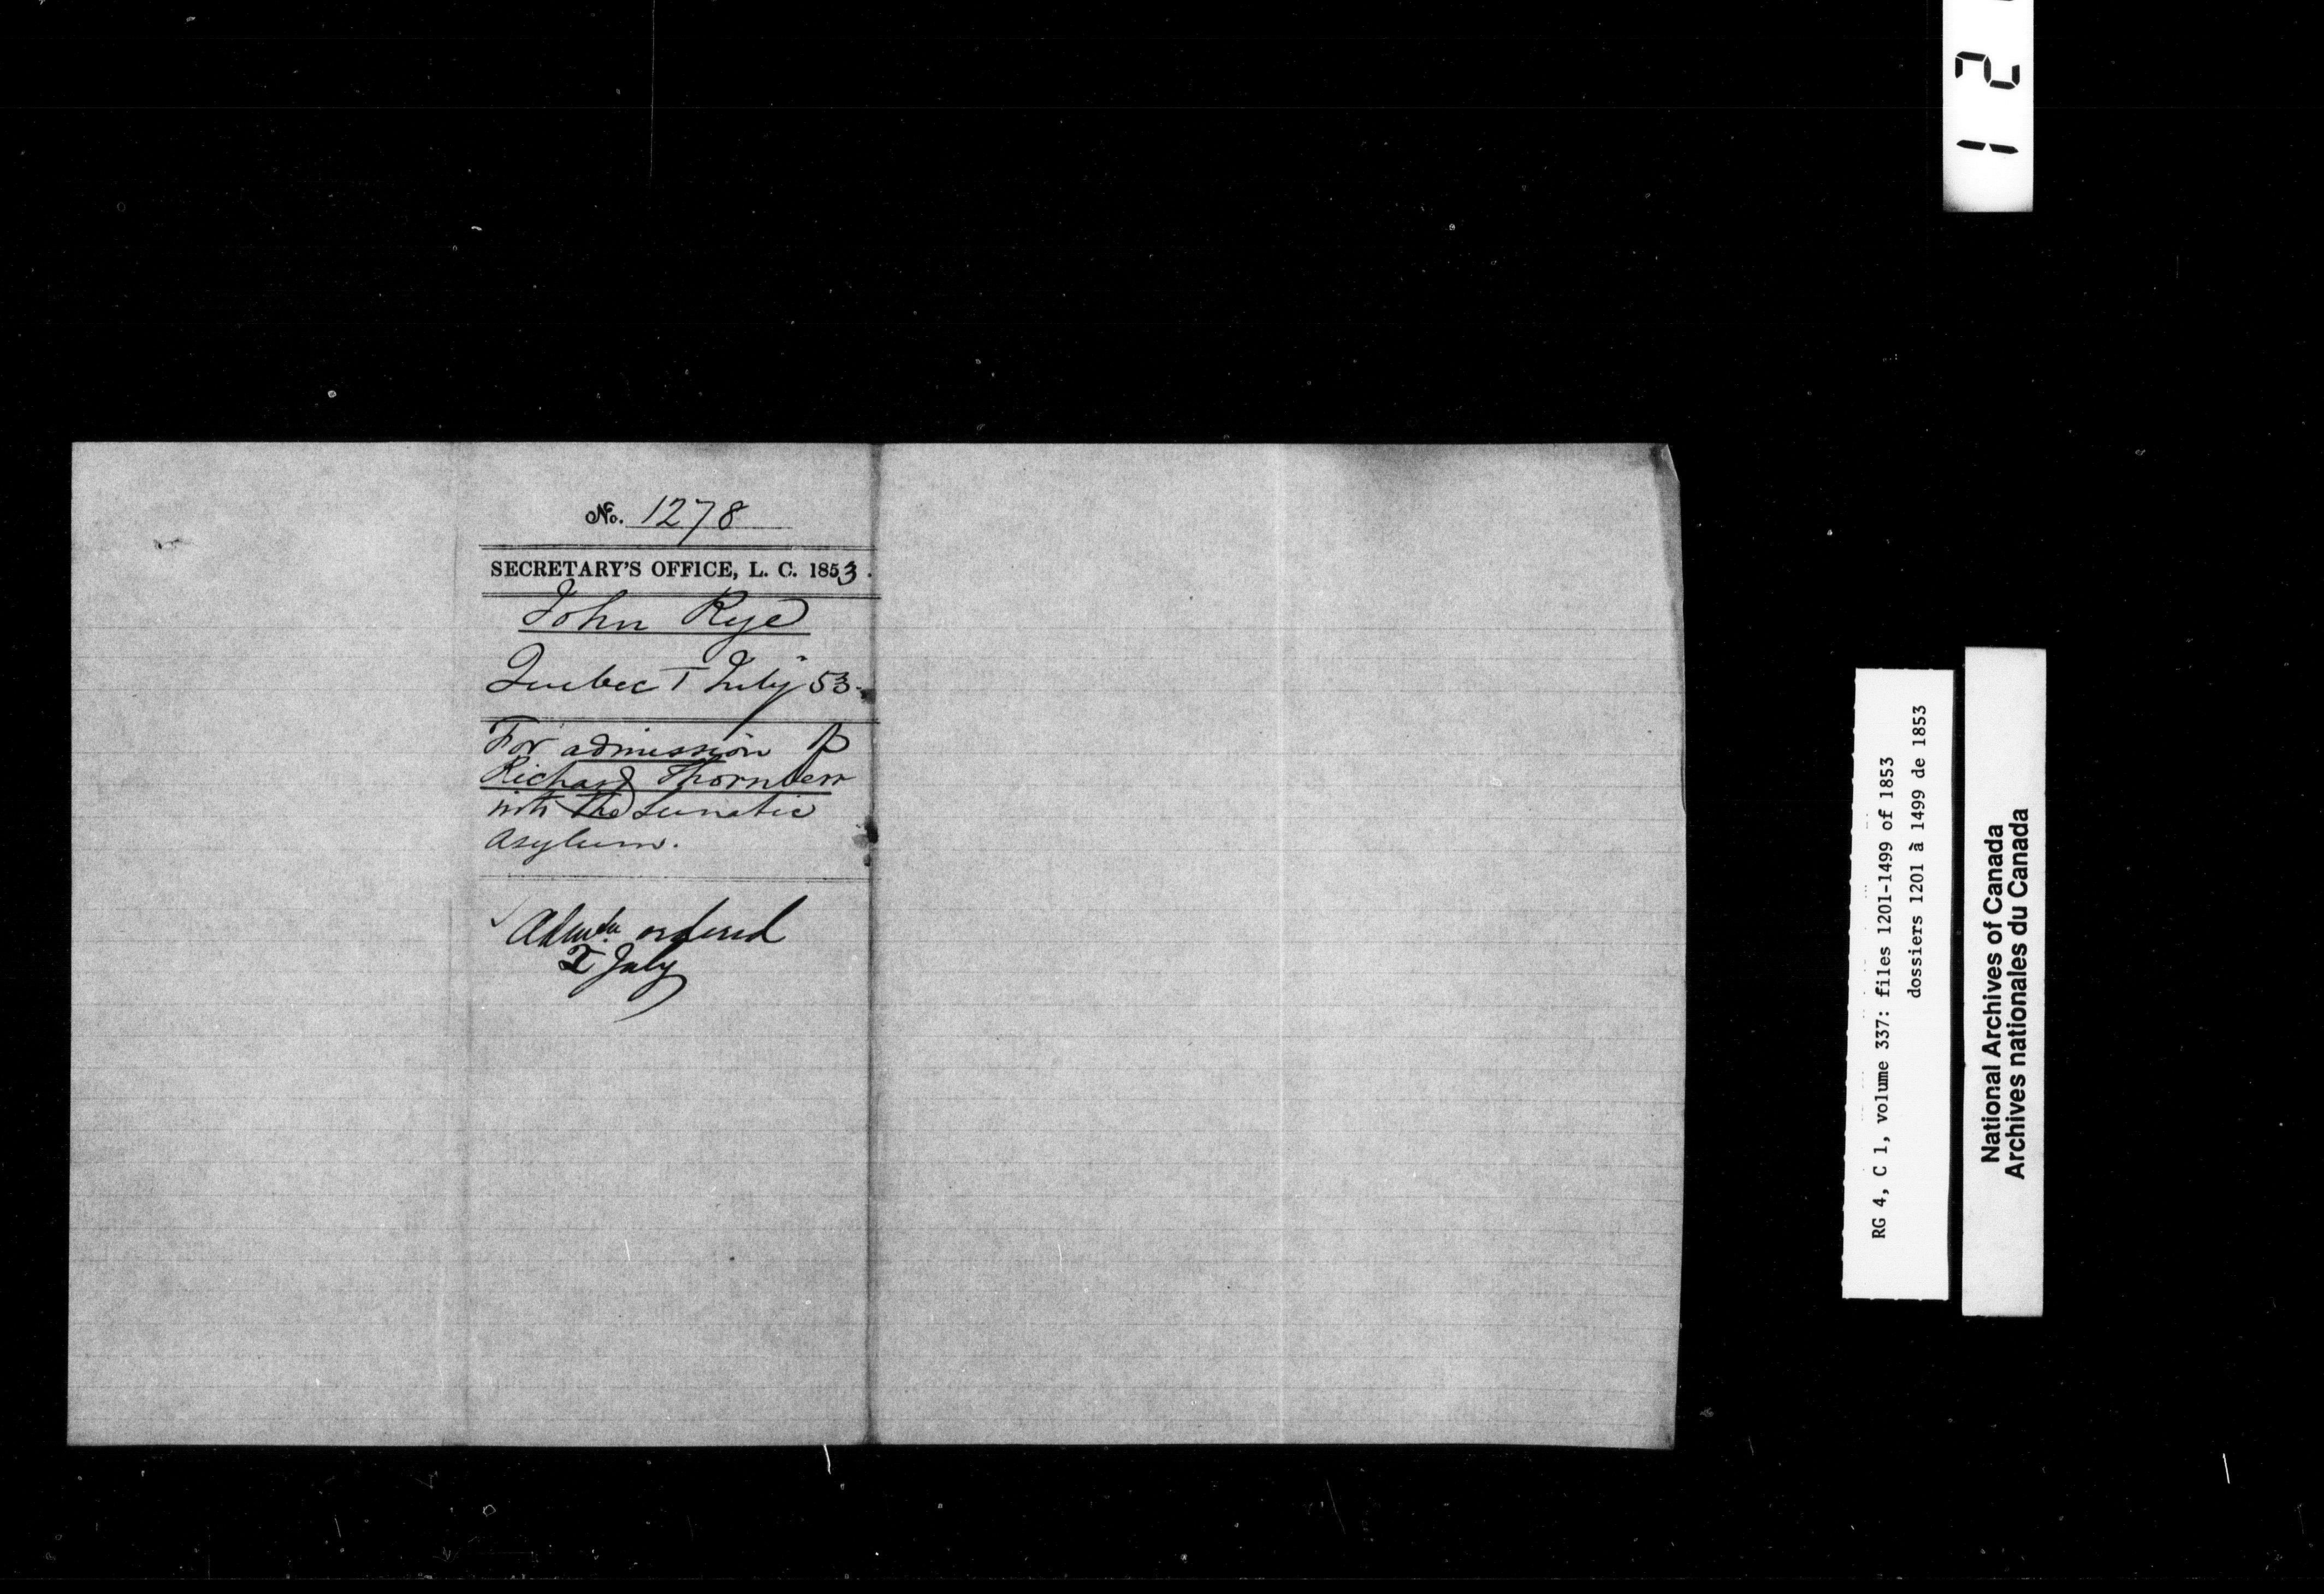 No. 1278
SECRETARY'S OFFICE, L. C. 1853.
John Rye
Quebec 1 July 53.
For admission of
Richard Thornber
into the Lunatic
Asylum.
ordered
July
12
RG 4, C 1, volume 337: files 1201-1499 of 1853
dossiers 1201 à 1499 de 1853
National Archives of Canada
Archives nationales du Canada